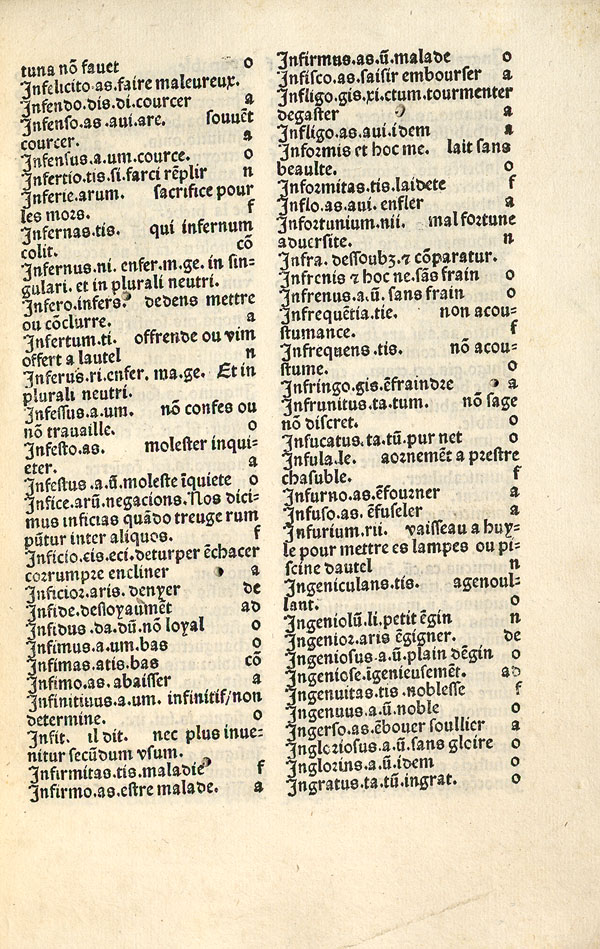 tuna nõ fauet o
Infelicito as.faire maleureux.
Infendo.dis.di.courcer a
Infenso.as.aui.are. souuēt
courcer. a
Infensus.a.um.cource. o
Infertio.tis.si.farci rēplir n
Inferie.arum. sacrifice pour
les mors. f
Infernas.tis. qui infernum
colit. cõ
Infernus.ni. enfer.m.ge. in sin=
gulari. et in plurali neutri.
Infero.infers. dedens mettre
ou cõclurre. a
Infertum.ti. offrende ou vim
offert a lautel n
Inferus.ri.enfer. ma.ge. Et in
plurali neutri.
Infessus.a.um. nõ confes ou
nõ trauaille. o
Infesto.as. molester inqui=
eter. a
Infestus.a.ū.moleste īquiete o
Infice.arū.negacions.Nos dici=
mus inficias quãdo treuge rum
pūtur inter aliquos. f
Inficio.cis.eci.deturper ēchacer
corrumpre encliner a
Inficior.aris.denyer de
Infide.desloyaumēt ad
Infidus.da.dū.nõ loyal o
Infimus.a.um.bas o
Infimas.atis.bas cõ
Infimo.as.abaisser a
Infinitiuus.a.um. infinitif/non
determine. o
Infit. il dit. nec plus inue=
nitur secūdum vsum.
Infirmitas.tis.maladie f
Infirmo.as.estre malade. a
Infirmus.as.ū.malade o
Infisco.as.saisir embourser a
Infligo.gis.xi.ctum.tourmenter
degaster a
Infligo.as.aui.idem a
Informis et hoc me. lait sans
beaulte. o
Informitas.tis.laidete f
Inflo.as.aui.enfler a
Infortunium.nii. mal fortune
aduersite. n
Infra.dessoubz.⁊ cõparatur.
Infrenis ⁊ hoc ne.sãs frain o
Infrenus.a.ū.sans frain o
Infrequētia.tie. non acou=
stumance. f
Infrequens.tis. nõ acou=
stume. o
Infringo.gis.ēfraindre a
Infrunitus.ta.tum. nõ sage
nõ discret. o
Infucatus.ta.tū.pur net o
Infula.le. aornemēt a prestre
chasuble. f
Infurno.as.ēfourner a
Infuso.as.ēfuseler a
Infurium.rii. vaisseau a huy=
le pour mettre es lampes ou pi=
scine dautel n
Ingeniculans.tis. agenoul=
lant. o
Ingeniolū.li.petit ēgin n
Ingenior.aris ēgigner. de
Ingeniosus.a.ū.plain dēgin o
Ingeniose.īgenieusemēt. ad
Ingenuitas.tis.noblesse f
Ingenuus.a.ū.noble o
Ingerso.as.ēbouer soullier a
Ingloriosus.a.ū.sans gloire o
Inglorius.a.ū.idem o
Ingratus.ta.tū.ingrat. o